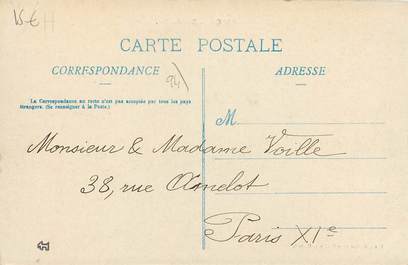 15€
CARTE POSTALE
CORRESPONDANCE
ADRESSE
94)
La Correspondance au recto n'est pas acceptée par tous les pays
étrangers. (Se renseigner à la Poste.)
M
Monsieur & Madame Voille
38, rue Amelot
Paris XIe